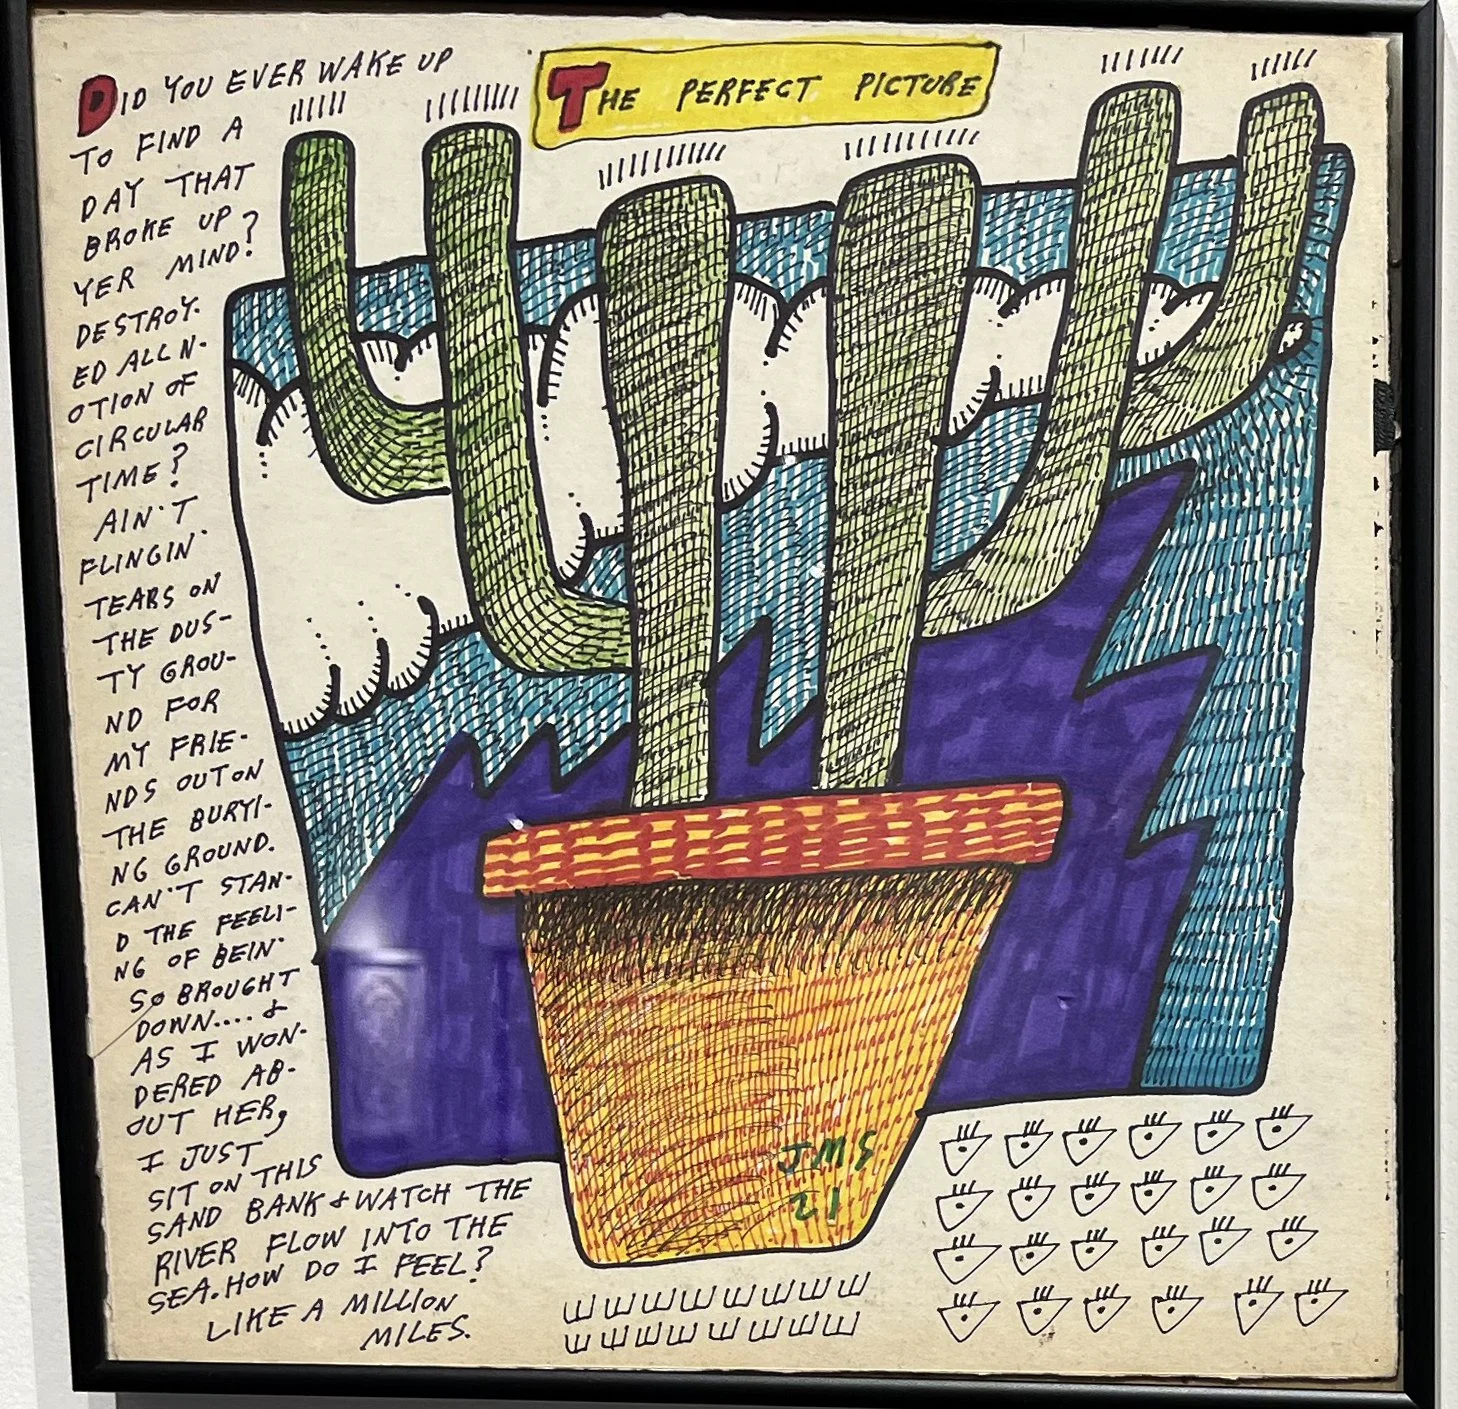 DID YOU EVER WAKE UP
TO FIND A
DAY THAT
BROKE UP
YER MIND?
DESTROY.
ED ALL N-
OTION OF
CIRCULAR
TIME?
AIN'T
FLINGIN'
TEARS ON
THE DUS-
TY GROU-
ND FOR
MY FRIE-
NDS OUT ON
THE BURYI-
NG GROUND.
CAN'T STAN-
D THE FEELI-
NG OF BEIN'
SO BROUGHT
DOWN.... &
AS I WON-
DERED AB-
OUT HER,
I JUST
SIT ON THIS
SAND BANK & WATCH THE
RIVER FLOW INTO THE
SEA. HOW DO I FEEL?
LIKE A MILLION
MILES.
THE PERFECT PICTURE
JMS
21